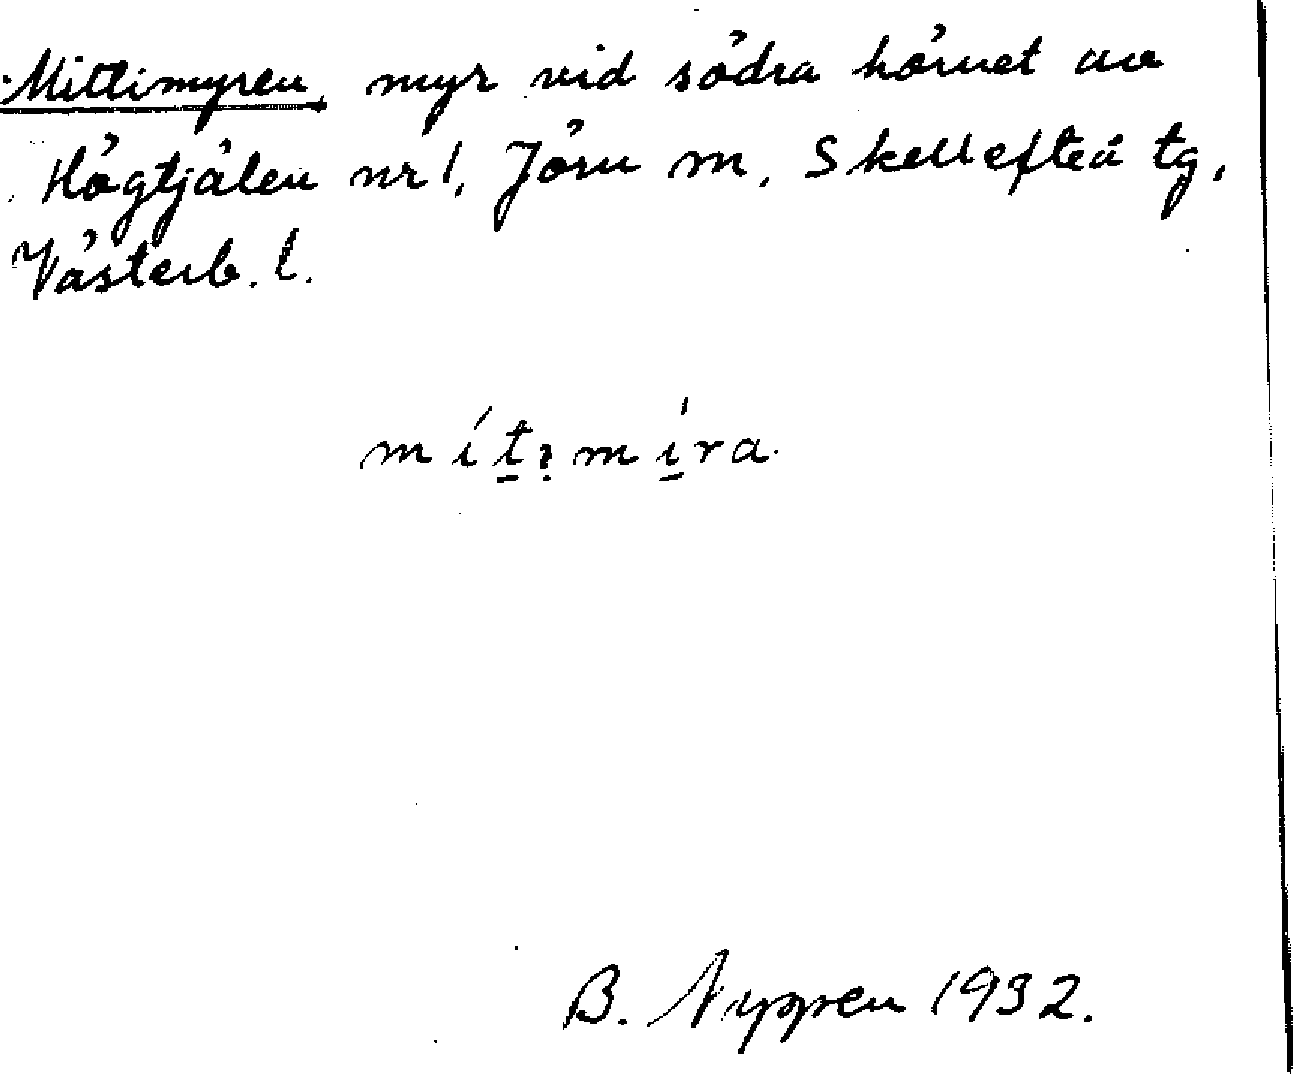 Mittimyren, myr vid södra hörnet av
Högtjälen nr 1, Jörn m, Skellefteå tg,
Västerb. l.
mítımíra.
B. Nygren 1932.